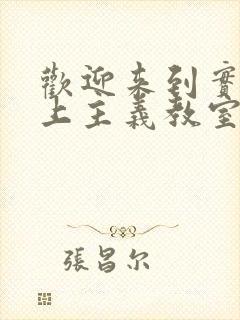 歡迎來到實
上主義教室
張昌尔